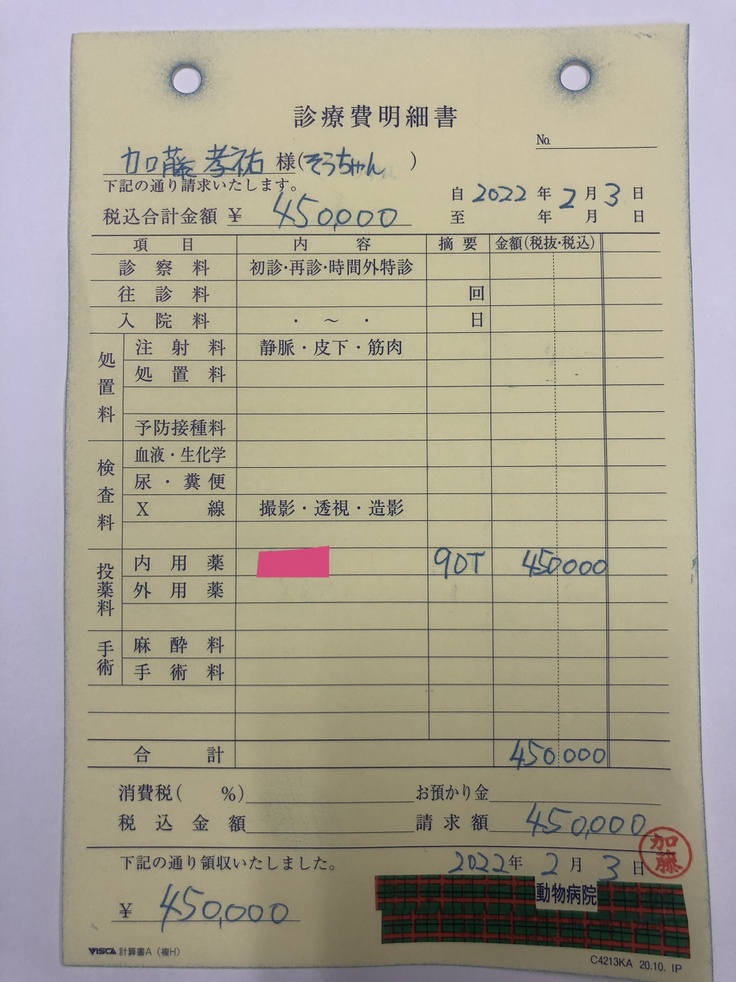 診療費明細書
No.
加藤 孝祐 様(そうちゃん)
下記の通り請求いたします。
自 2022 年 2 月 3 日
税込合計金額 ¥ 450,000
至 年 月 日
項 目 内 容 摘 要 金額(税抜・税込)
診 察 料 初診・再診・時間外特診
往 診 料 回
入 院 料 ・ ～ ・ 日
処置料
注 射 料 静脈・皮下・筋肉
処 置 料
予防接種料
検査料
血液・生化学
尿 ・ 糞 便
X 線 撮影・透視・造影
投薬料
内 用 薬 90T 450000
外 用 薬
手術
麻 酔 料
手 術 料
合 計 450000
消費税( %) お預かり金
税 込 金 額 請 求 額 450,000
下記の通り領収いたしました。 2022 年 2 月 3 日
加藤
動物病院
¥ 450,000
VISCA 計算書A（複H）
C4213KA 20.10. IP